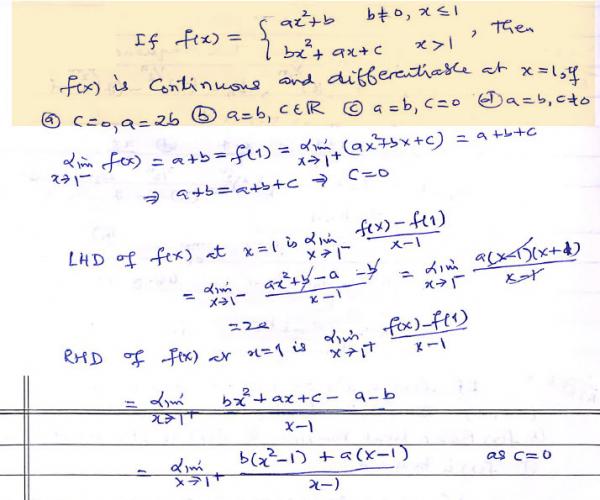 If f(x) = { ax²+b b≠0, x≤1
bx²+ax+c x>1 , Then
f(x) is Continuous and differentiable at x=1, if
ⓐ c=0, a=2b ⓑ a=b, c∈R ⓒ a=b, c=0 ⓓ a=b, c≠0
lim x→1⁻ f(x) = a+b = f(1) = lim x→1⁺ (ax²+bx+c) = a+b+c
⇒ a+b = a+b+c ⇒ c=0
LHD of f(x) at x=1 is lim x→1⁻ f(x)-f(1) / x-1
= lim x→1⁻ ax²+b-a-b / x-1 = lim x→1⁻ a(x-1)(x+1) / x-1
= 2a
RHD of f(x) at x=1 is lim x→1⁺ f(x)-f(1) / x-1
= lim x→1⁺ bx²+ax+c-a-b / x-1
= lim x→1⁺ b(x²-1)+a(x-1) / x-1 as c=0